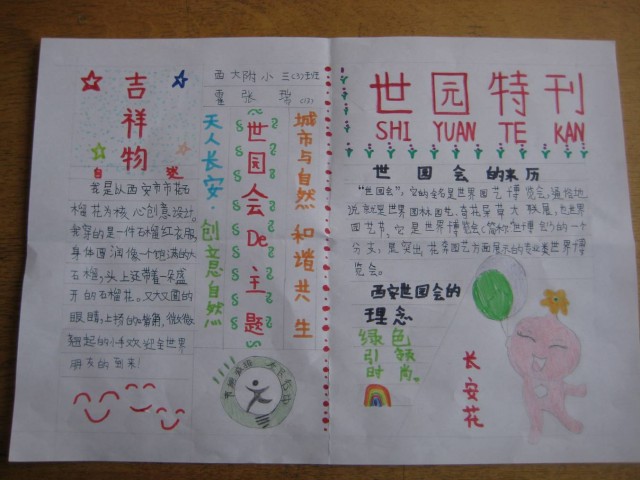 吉祥物
自述
我是以西安市市花石
榴花为核心创意设计。
我穿的是一件石榴红衣服,
身体圆润像个饱满的大
石榴,头上还带着一朵盛
开的石榴花。又大又圆的
眼睛,上扬的嘴角,微微
翘起的小手欢迎全世界
朋友的到来!
西大附小三(3)班
霍张瑞
天人长安·创意自然
世园会De主题
城市与自然和谐共生
世园特刊
SHI YUAN TE KAN
世园会的来历
"世园会",它的全名是世界园艺博览会,通俗地
说就是世界园林园艺、奇花异草大联展,也世界
园艺节。它是世界博览会(简称世博会)的一个
分支,是突出花卉园艺方面展示的专业类世界博
览会。
西安世园会的
理念
绿色
引领
时尚。
长安花